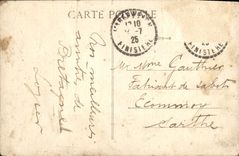 CARTE POSTALE
18
-7
25
FINISTERE
25
FINISTERE
Nos meilleures
amitiés de
Bretagne
Mr Mme Gauthier
Fabricant de Sabots
Ecommoy
Sarthe